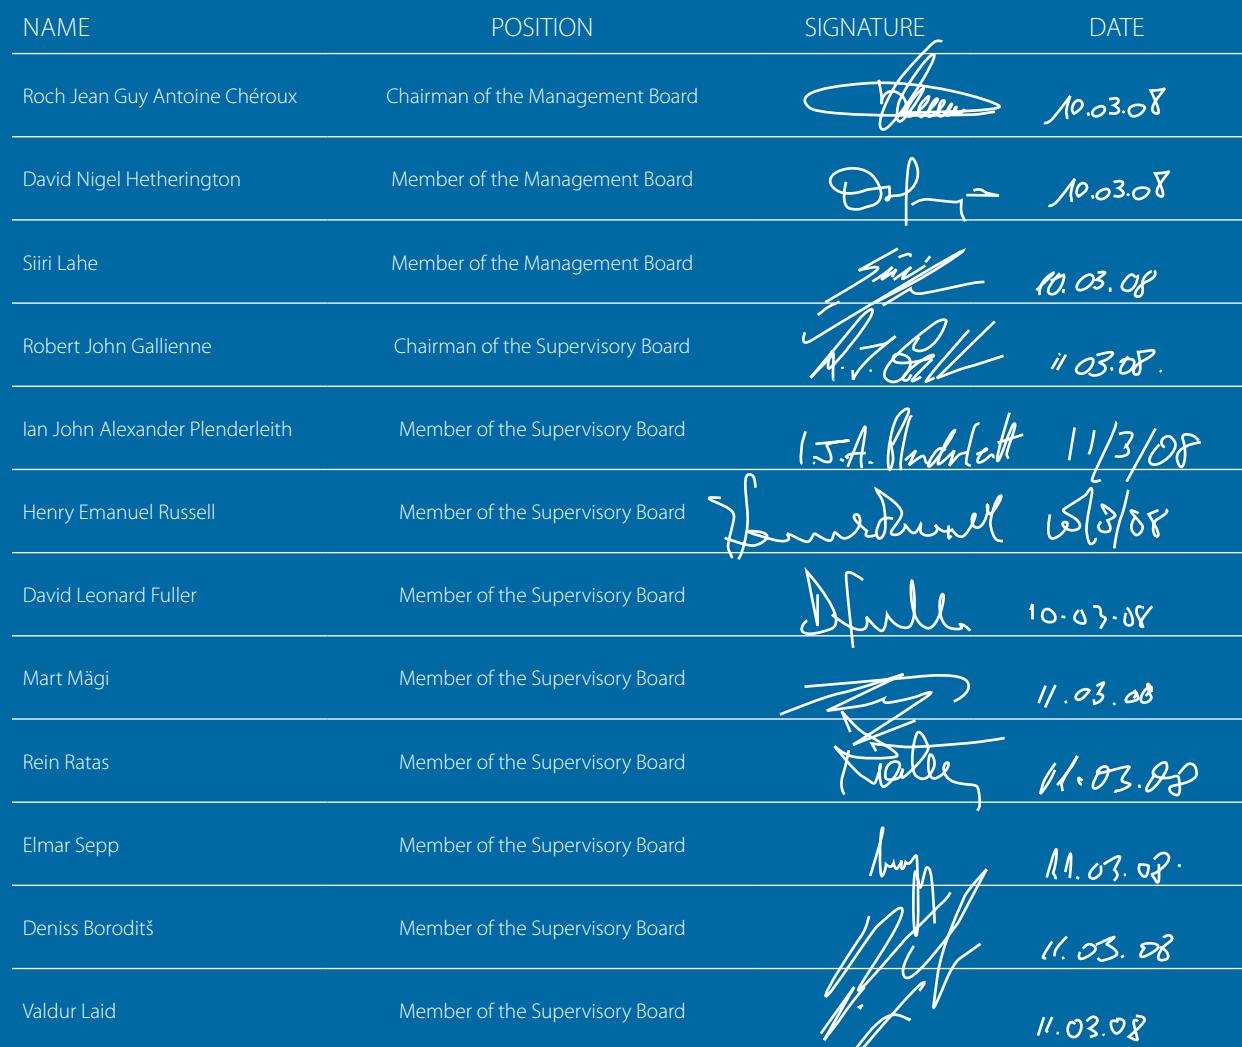 NAME POSITION SIGNATURE DATE
Roch Jean Guy Antoine Chéroux Chairman of the Management Board 10.03.08
David Nigel Hetherington Member of the Management Board 10.03.08
Siiri Lahe Member of the Management Board Siiri 10.03.08
Robert John Gallienne Chairman of the Supervisory Board R.J. Gall 11 03.08.
Ian John Alexander Plenderleith Member of the Supervisory Board I.J.A. Plenderleith 11/3/08
Henry Emanuel Russell Member of the Supervisory Board /3/08
David Leonard Fuller Member of the Supervisory Board DFuller 10.03.08
Mart Mägi Member of the Supervisory Board 11.03.08
Rein Ratas Member of the Supervisory Board 11.03.08
Elmar Sepp Member of the Supervisory Board 11.03.08.
Deniss Boroditš Member of the Supervisory Board 11.03.08
Valdur Laid Member of the Supervisory Board 11.03.08